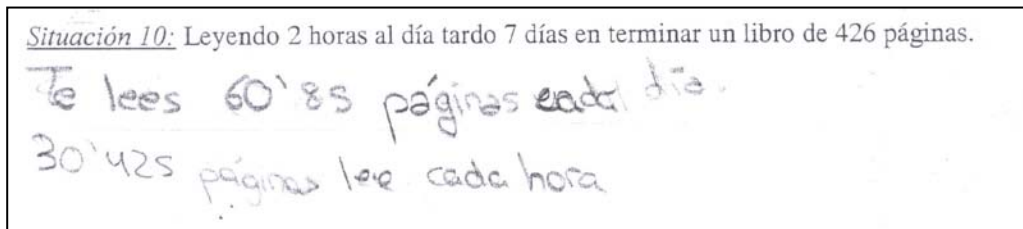 Situación 10: Leyendo 2 horas al día tardo 7 días en terminar un libro de 426 páginas.
Te lees 60'85 páginas cada día.
30'425 páginas lee cada hora